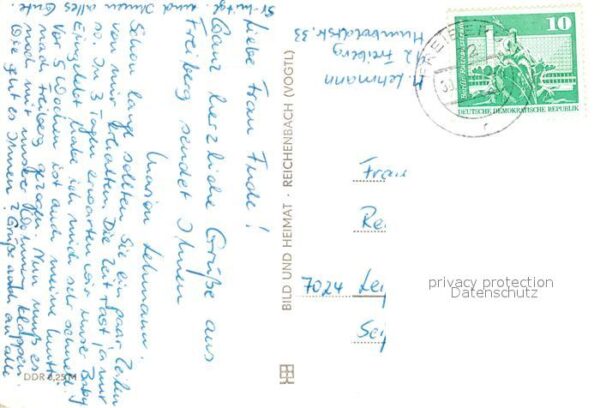 Liebe Frau Funde!
Ganz herzliche Grüße aus
Freiberg sendet Ihnen
Marion Lehmann.
Schon lange sollten Sie ein paar Zeilen
von mir erhalten. Die Zeit rast ja nur
so. In 3 Tagen erwarten wir unser Baby
Eingelebt habe ich mich sehr schnell
Vor 5 Wochen ist auch meine Mutti
nach Freiberg gezogen. Nun muß es
noch mit unser Wohnung klappen.
Wie geht es Ihnen? Grüße auch an alle
und Ihnen alles Gute.
M. Lehmann
92 Freiberg
Humboldtstr. 33
BILD UND HEIMAT · REICHENBACH (VOGTL)
DDR
FREIBERG
10
Berlin
DEUTSCHE DEMOKRATISCHE REPUBLIK
Frau
Re
7024 Lei
privacy protection
Datenschutz